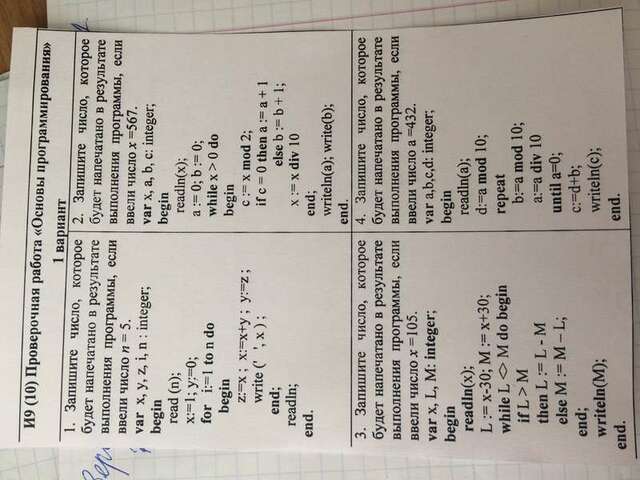 И9 (10) Проверочная работа «Основы программирования»
1 вариант
1. Запишите число, которое
будет напечатано в результате
выполнения программы, если
ввели число n = 5.
var x, y, z, i, n : integer;
begin
read (n);
x:=1; y:=0;
for i:=1 to n do
begin
z:=x ; x:=x+y ; y:=z ;
write (' ', x ) ;
end;
readln;
end.
2. Запишите число, которое
будет напечатано в результате
выполнения программы, если
ввели число x =567.
var x, a, b, c: integer;
begin
readln(x);
a := 0; b := 0;
while x > 0 do
begin
c := x mod 2;
if c = 0 then a := a + 1
else b := b + 1;
x := x div 10
end;
writeln(a); write(b);
end.
3. Запишите число, которое
будет напечатано в результате
выполнения программы, если
ввели число x =105.
var x, L, M: integer;
begin
readln(x);
L := x-30; M := x+30;
while L <> M do begin
if L > M
then L := L - M
else M := M – L;
end;
writeln(M);
end.
4. Запишите число, которое
будет напечатано в результате
выполнения программы, если
ввели число a =432.
var a,b,c,d: integer;
begin
readln(a);
d:=a mod 10;
repeat
b:=a mod 10;
a:=a div 10
until a=0;
c:=d+b;
writeln(c);
end.